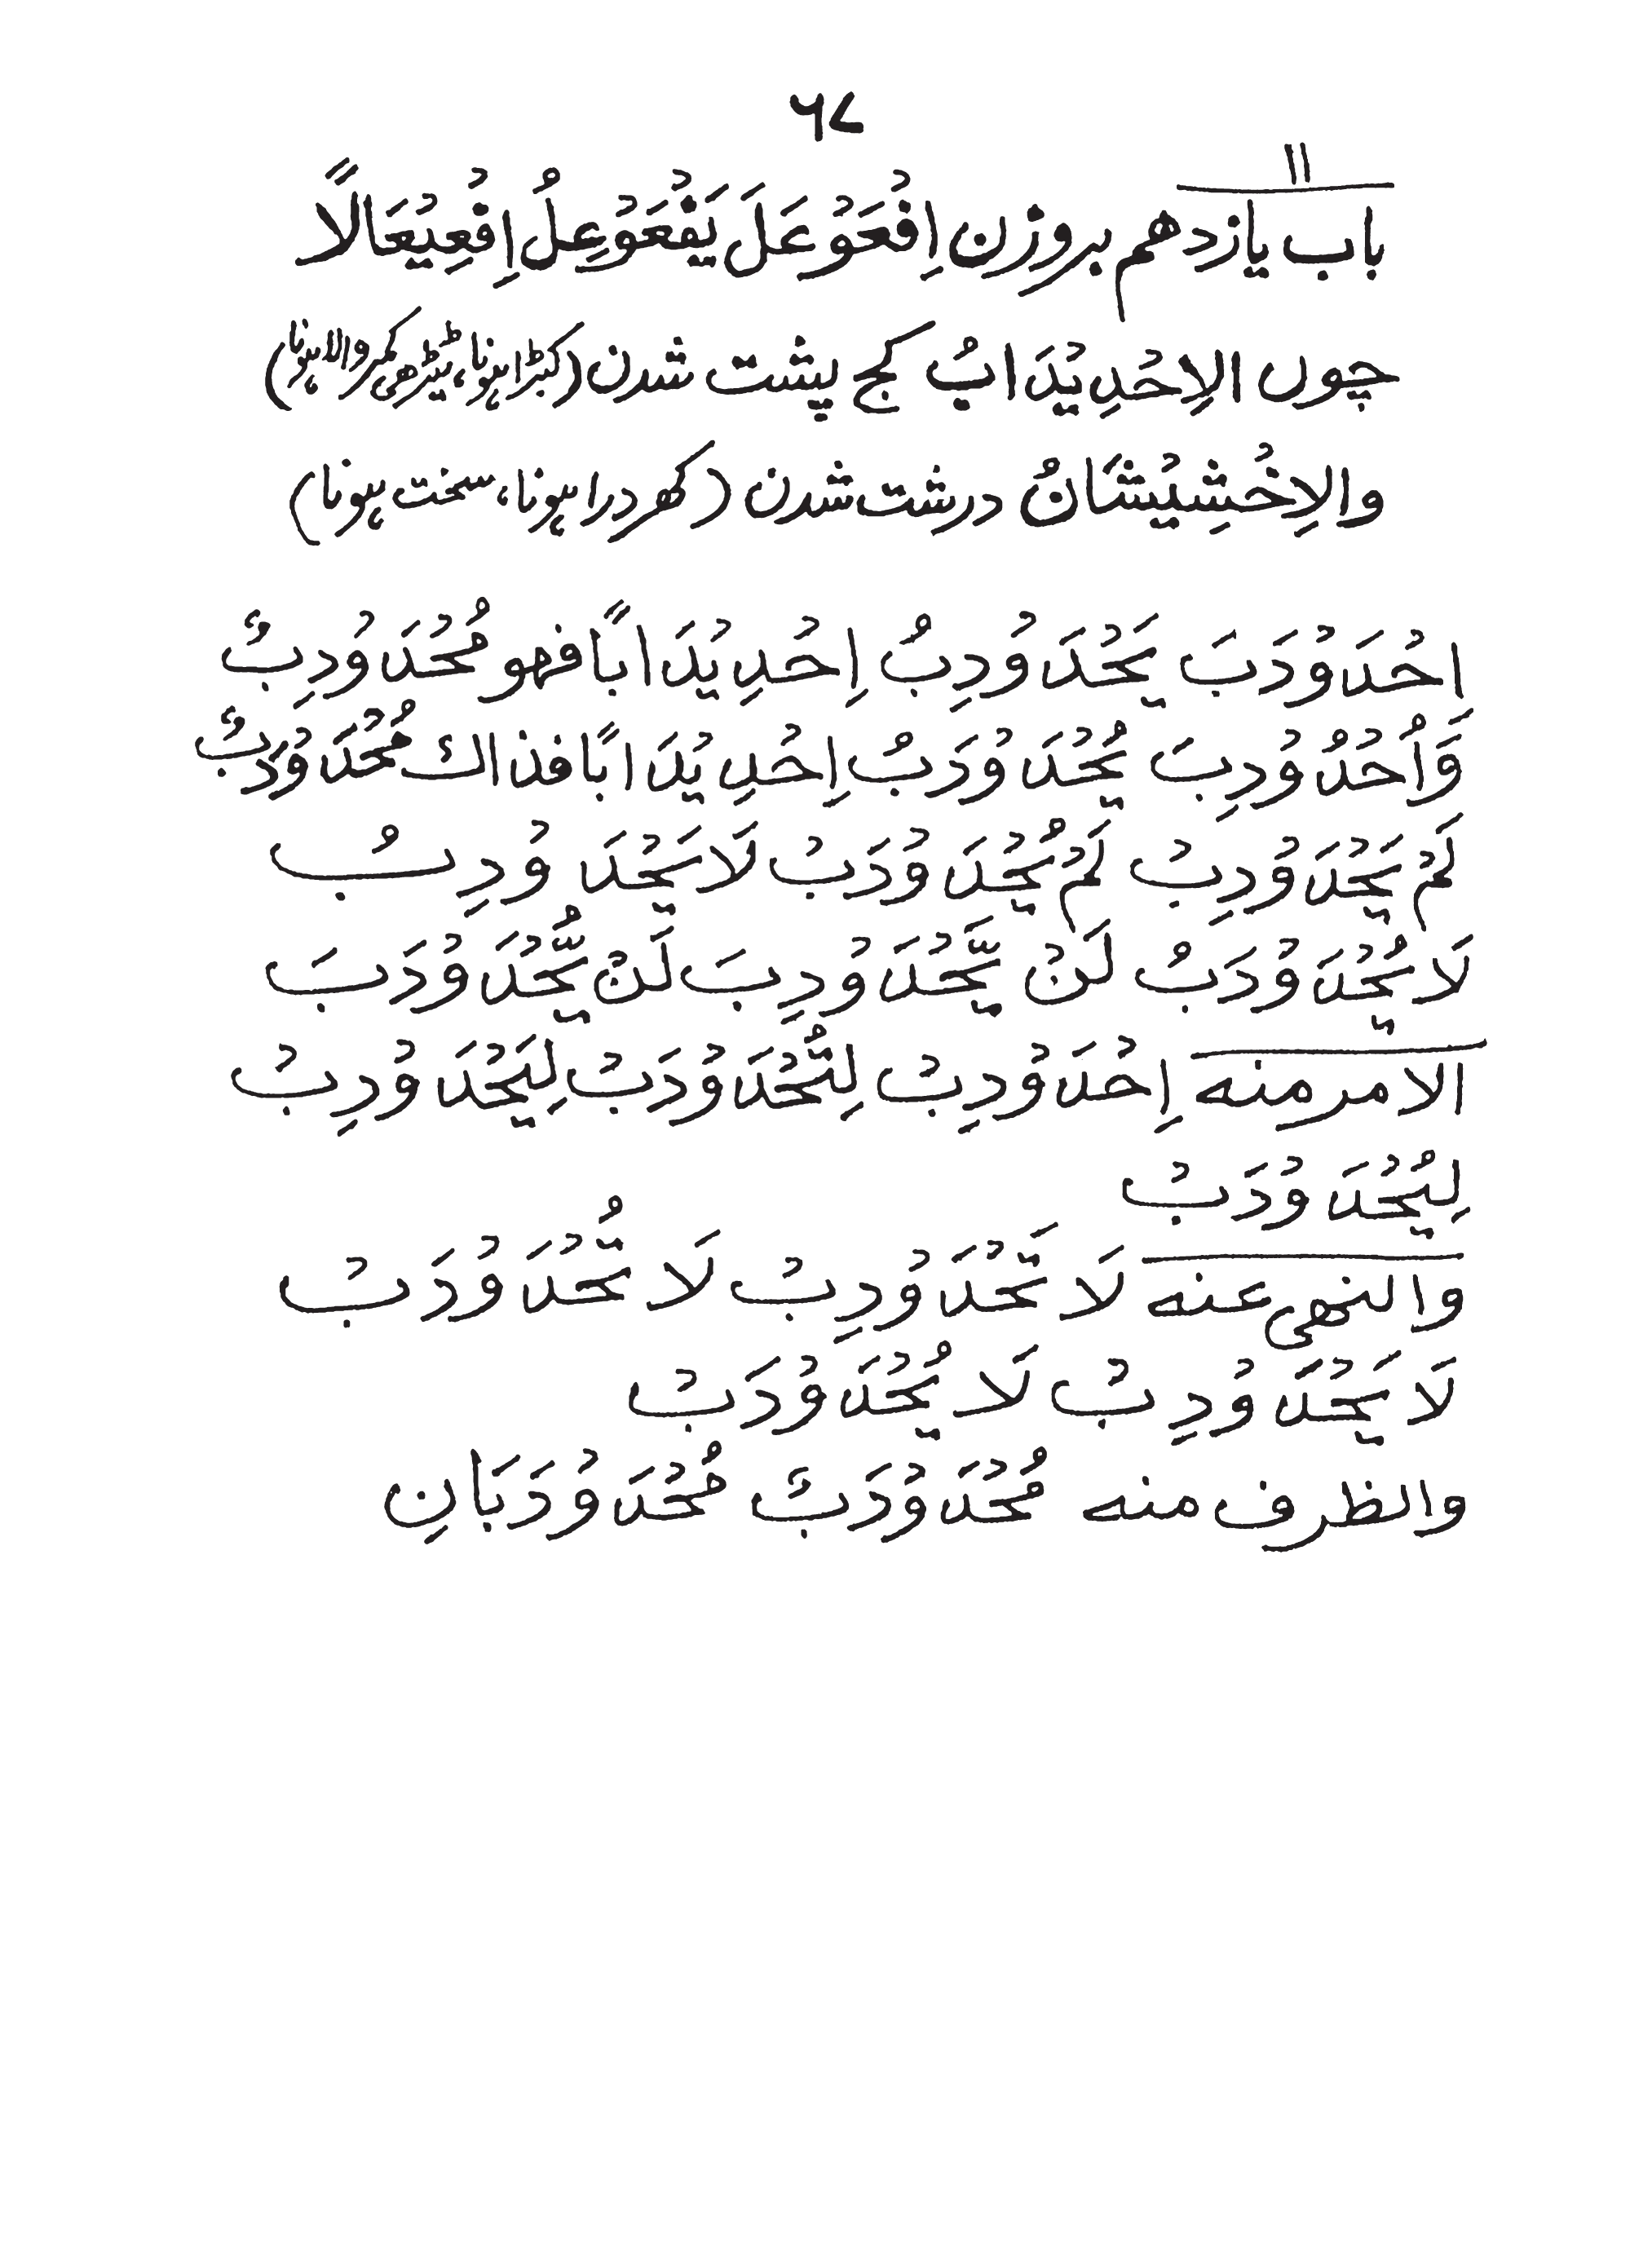 ۶۷
۱۱
باب یازدهم بروزن اِفْعَوْعَلَ يَفْعَوْعِلُ اِفْعِيْعَالًا
چوں الاِحْدِيْدَابُ کج پشت شدن (کبڑا ہونا، ٹیڑھی کمر والا ہونا)
والاِخْشِيْشَانُ درشت شدن (کھردرا ہونا، سخت ہونا)
احْدَوْدَبَ يَحْدَوْدِبُ اِحْدِيْدَابًا فهو مُحْدَوْدِبٌ
وَاُحْدُوْدِبَ يُحْدَوْدَبُ اِحْدِيْدَابًا فذاك مُحْدَوْدَبٌ
لَمْ يَحْدَوْدِبْ لَمْ يُحْدَوْدَبْ لَا يَحْدَوْدِبُ
لَا يُحْدَوْدَبُ لَنْ يَّحْدَوْدِبَ لَنْ يُّحْدَوْدَبَ
الامر منه اِحْدَوْدِبْ لِتُحْدَوْدَبْ لِيَحْدَوْدِبْ
لِيُحْدَوْدَبْ
والنهى عنه لَا تَحْدَوْدِبْ لَا تُحْدَوْدَبْ
لَا يَحْدَوْدِبْ لَا يُحْدَوْدَبْ
والظرف منه مُحْدَوْدَبٌ مُحْدَوْدَبَانِ